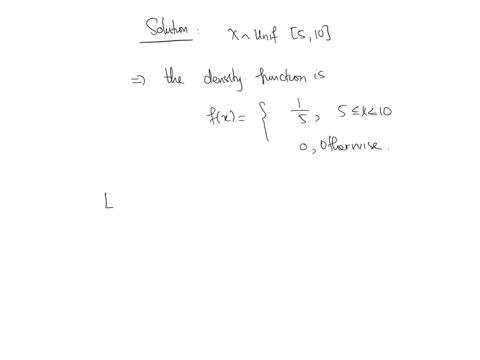 Solution: X ~ Unif [5, 10]
⇒ the density function is
f(x) = { 1/5, 5 ≤ x ≤ 10
0, Otherwise.
L